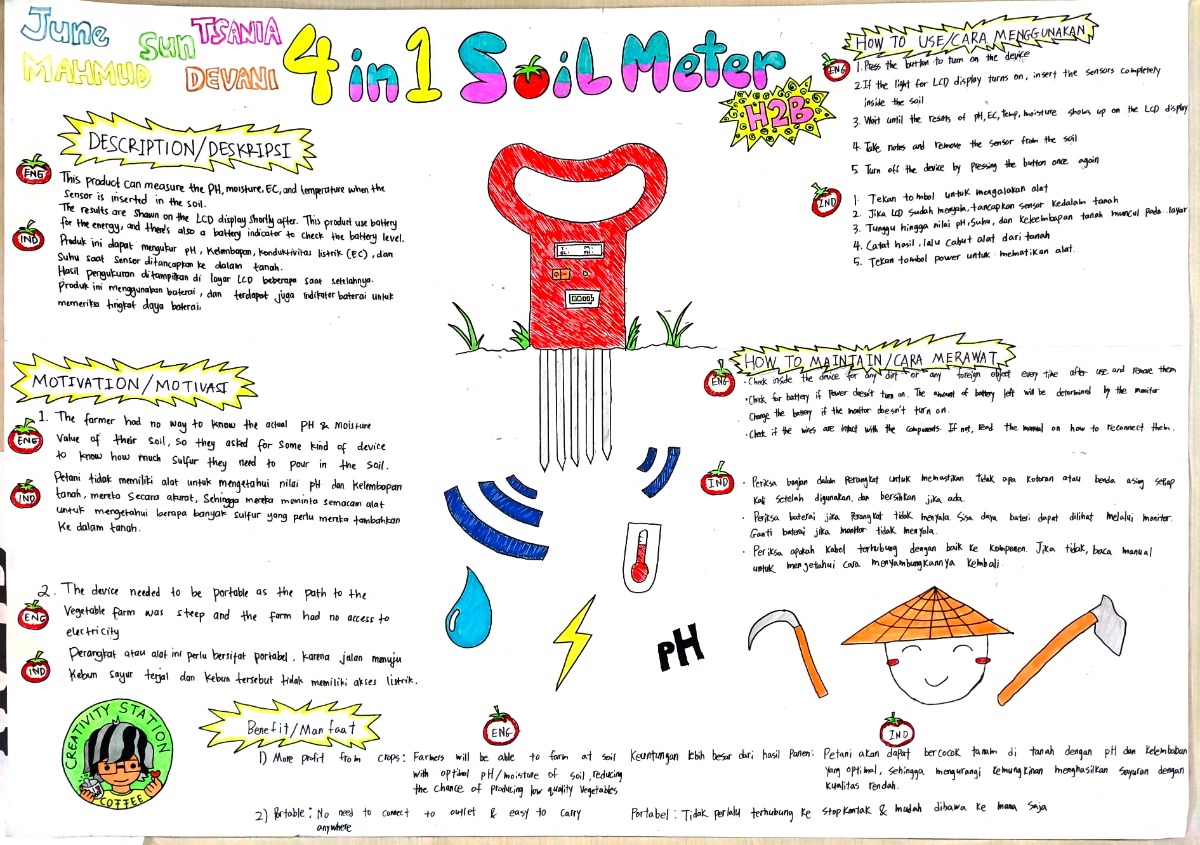 June
Sun
TSANIA
MAHMUD
DEVANI
4 in 1 SOiL Meter
H2B
DESCRIPTION/DESKRIPSI
ENG
This product can measure the PH, moisture, EC, and temperature when the
Sensor is inserted in the soil.
The results are shown on the LCD display shortly after. This product use battery
for the energy, and there's also a battery indicator to check the battery level.
IND
Produk ini dapat mengukur pH, Kelembapan, konduktivitas listrik (EC), dan
Suhu saat Sensor ditancapkan ke dalam tanah.
Hasil pengukuran ditampilkan di layar LCD beberapa saat setelahnya.
Produk ini menggunakan baterai, dan terdapat juga indikator baterai untuk
memeriksa tingkat daya baterai.
MOTIVATION/MOTIVASI
ENG
1. The farmer had no way to know the actual PH & Moisture
Value of their Soil, so they asked for some kind of device
to know how much Sulfur they need to pour in the Soil.
IND
Petani tidak memiliki alat untuk mengetahui nilai pH dan Kelembapan
tanah, mereka Secara akurat, Sehingga mereka meminta semacam alat
untuk mengetahui berapa banyak sulfur yang perlu mereka tambahkan
Ke dalam tanah.
2. The device needed to be portable as the path to the
ENG
Vegetable farm was steep and the farm had no access to
electricity
IND
Perangkat atau alat ini perlu bersifat portabel, karena jalan menuju
Kebun sayur terjal dan Kebun tersebut tidak memiliki akses listrik.
HOW TO USE/CARA MENGGUNAKAN
ENG
1. Press the button to turn on the device
2. If the light for LCD display turns on, insert the sensors completely
inside the soil
3. Wait until the results of pH, EC, Temp, moisture shows up on the LCD display
4. Take notes and remove the sensor from the soil
5. Turn off the device by pressing the button once again
IND
1. Tekan tombol untuk mengalakan alat
2. Jika LCD sudah menyala, tancapkan sensor kedalam tanah
3. Tunggu hingga nilai pH, Suhu, dan Kelembapan tanah muncul pada layar
4. Catat hasil, lalu cabut alat dari tanah
5. Tekan tombol power untuk mematikan alat.
HOW TO MAINTAIN/CARA MERAWAT
ENG
• Check inside the device for any dirt or any foreign object every time after use, and remove them
• Check for battery if Power doesn't turn on. The amount of battery left will be determined by the monitor
Change the battery if the monitor doesn't turn on.
• Check if the wires are intact with the components. If not, read the manual on how to reconnect them.
IND
• Periksa bagian dalam Perangkat untuk memastikan tidak apa kotoran atau benda asing setiap
Kali setelah digunakan, dan bersihkan jika ada.
• Periksa baterai jika Perangkat tidak menyala. Sisa daya bateri dapat dilihat melalui monitor.
Ganti baterai jika monitor tidak menyala.
• Periksa apakah Kabel terhubung dengan baik ke Komponen. Jika tidak, baca manual
untuk mengetahui cara menyambungkannya kembali
PH
CREATIVITY STATION
COFFEE
Benefit/Manfaat
ENG
1) More profit from crops: Farmers will be able to farm at soil
with optimal pH/moisture of soil, reducing
the chance of producing low quality vegetables
2) Portable: No need to connect to outlet & easy to carry
anywhere
IND
Keuntungan lebih besar dari hasil Panen: Petani akan dapat bercocok tanam di tanah dengan pH dan kelembaban
Yang optimal, sehingga mengurangi kemungkinan menghasilkan sayuran dengan
Kualitas rendah.
Portabel: Tidak perlalu terhubung ke stopkontak & mudah dibawa ke mana saja